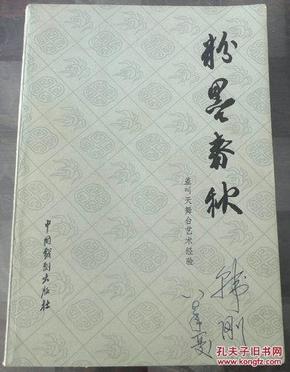 粉墨春秋
盖叫天舞台艺术经验
中国戏剧出版社
韩刚
孔夫子旧书网